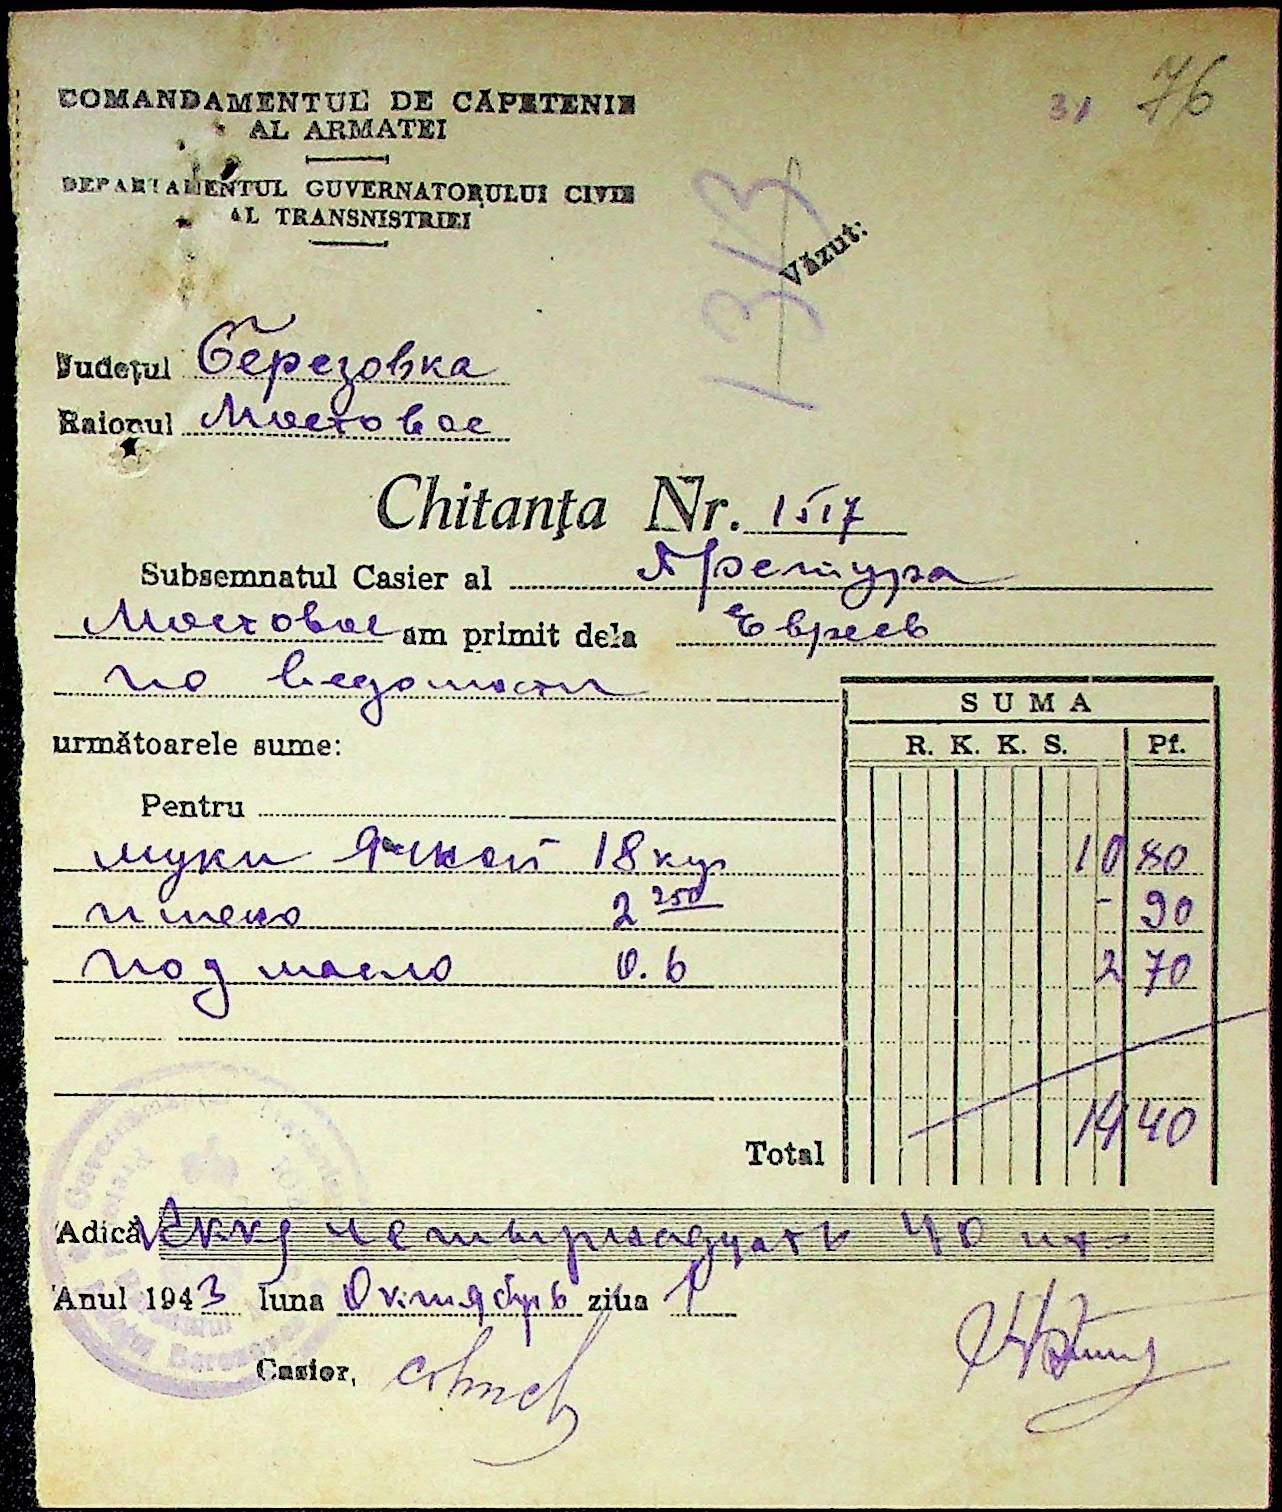 31 76
COMANDAMENTUL DE CĂPETENIE
AL ARMATEI
DEPARTAMENTUL GUVERNATORULUI CIVIL
AL TRANSNISTRIEI
Văzut:
Județul Березовка
Raionul Мостовое
Chitanța Nr. 1517
Subsemnatul Casier al Претура
Мостовое am primit dela Евреев
по ведомости
SUMA
următoarele sume:
R. K. K. S. Pf.
Pentru
муки Ячной 18 кгр 10 80
пшено 2 250 - 90
под масло 0.6 2 70
Total 14 40
Adică четырнадцать 40
Anul 1943 luna Октябрь ziua 1
Casier,